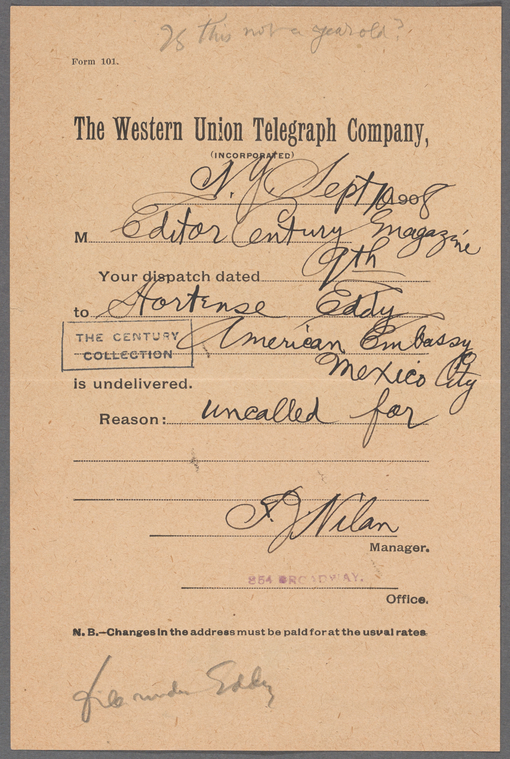 Is this not a year old?
Form 101.
The Western Union Telegraph Company,
(INCORPORATED)
N.Y. Sept 10 1908
M Editor Century Magazine
Your dispatch dated 9th
to Hortense Eddy
American Embassy
THE CENTURY
COLLECTION
Mexico City
is undelivered.
Reason: uncalled for
F J Nilan
Manager.
854 BROADWAY.
Office.
N. B.—Changes in the address must be paid for at the usual rates
file under Eddy